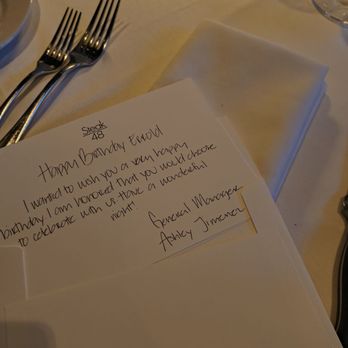 Steak
48
Happy Birthday Errold
I wanted to wish you a very happy
birthday I am honored that you would choose
to celebrate with us Have a wonderful
night!
General Manager
Ashley Jimenez